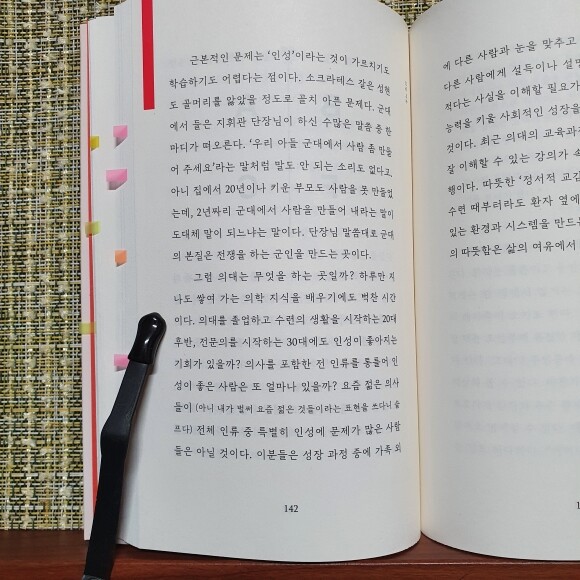 근본적인 문제는 ‘인성’이라는 것이 가르치기도
학습하기도 어렵다는 점이다. 소크라테스 같은 성현
도 골머리를 앓았을 정도로 골치 아픈 문제다. 군대
에서 들은 지휘관 단장님이 하신 수많은 말씀 중 한
마디가 떠오른다. ‘우리 아들 군대에서 사람 좀 만들
어 주세요’라는 말처럼 말도 안 되는 소리도 없다고.
아니 집에서 20년이나 키운 부모도 사람을 못 만들었
는데, 2년짜리 군대에서 사람을 만들어 내라는 말이
도대체 말이 되느냐는 말이다. 단장님 말씀대로 군대
의 본질은 전쟁을 하는 군인을 만드는 곳이다.
그럼 의대는 무엇을 하는 곳일까? 하루만 지
나도 쌓여 가는 의학 지식을 배우기에도 벅찬 시간
이다. 의대를 졸업하고 수련의 생활을 시작하는 20대
후반, 전문의를 시작하는 30대에도 인성이 좋아지는
기회가 있을까? 의사를 포함한 전 인류를 통틀어 인
성이 좋은 사람은 또 얼마나 있을까? 요즘 젊은 의사
들이 (아니 내가 벌써 요즘 젊은 것들이라는 표현을 쓰다니 슬
프다) 전체 인류 중 특별히 인성에 문제가 많은 사람
들은 아닐 것이다. 이분들은 성장 과정 중에 가족 외
142
에 다른 사람과 눈을 맞추고
다른 사람에게 설득이나 설명
적다는 사실을 이해할 필요가
능력을 키울 사회적인 성장을
것이다. 최근 의대의 교육과정
잘 이해할 수 있는 강의가 속
행이다. 따뜻한 ‘정서적 교감
수련 때부터라도 환자 옆에
있는 환경과 시스템을 만드는
의 따뜻함은 삶의 여유에서